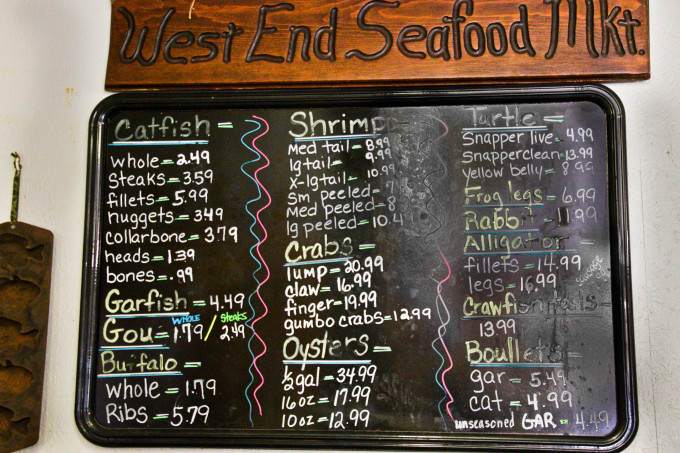 West End Seafood Mkt.
Catfish =
whole = 2.49
Steaks = 3.59
fillets = 5.99
nuggets = 3.49
collarbone = 3.79
heads = 1.39
bones = .99
Garfish = 4.49
Gou = WHOLE 1.79 / STEAKS 2.49
Buffalo =
whole = 1.79
Ribs = 5.79
Shrimp
Med tail = 8.99
lg tail = 9.99
X-lg tail = 10.99
Sm peeled = 7
Med peeled = 8
lg peeled = 10.4
Crabs =
lump = 20.99
claw = 16.99
finger = 19.99
gumbo crabs = 12.99
Oysters =
½ gal = 34.99
16oz = 17.99
10oz = 12.99
Turtle =
Snapper live = 4.99
Snapper clean = 13.99
yellow belly = 8.99
Frog legs = 6.99
Rabbit = 11.99
Alligator =
fillets = 14.99
legs = 16.99
sausage
Crawfish tails =
13.99
Boullets =
gar = 5.49
cat = 4.99
unseasoned GAR = 4.49